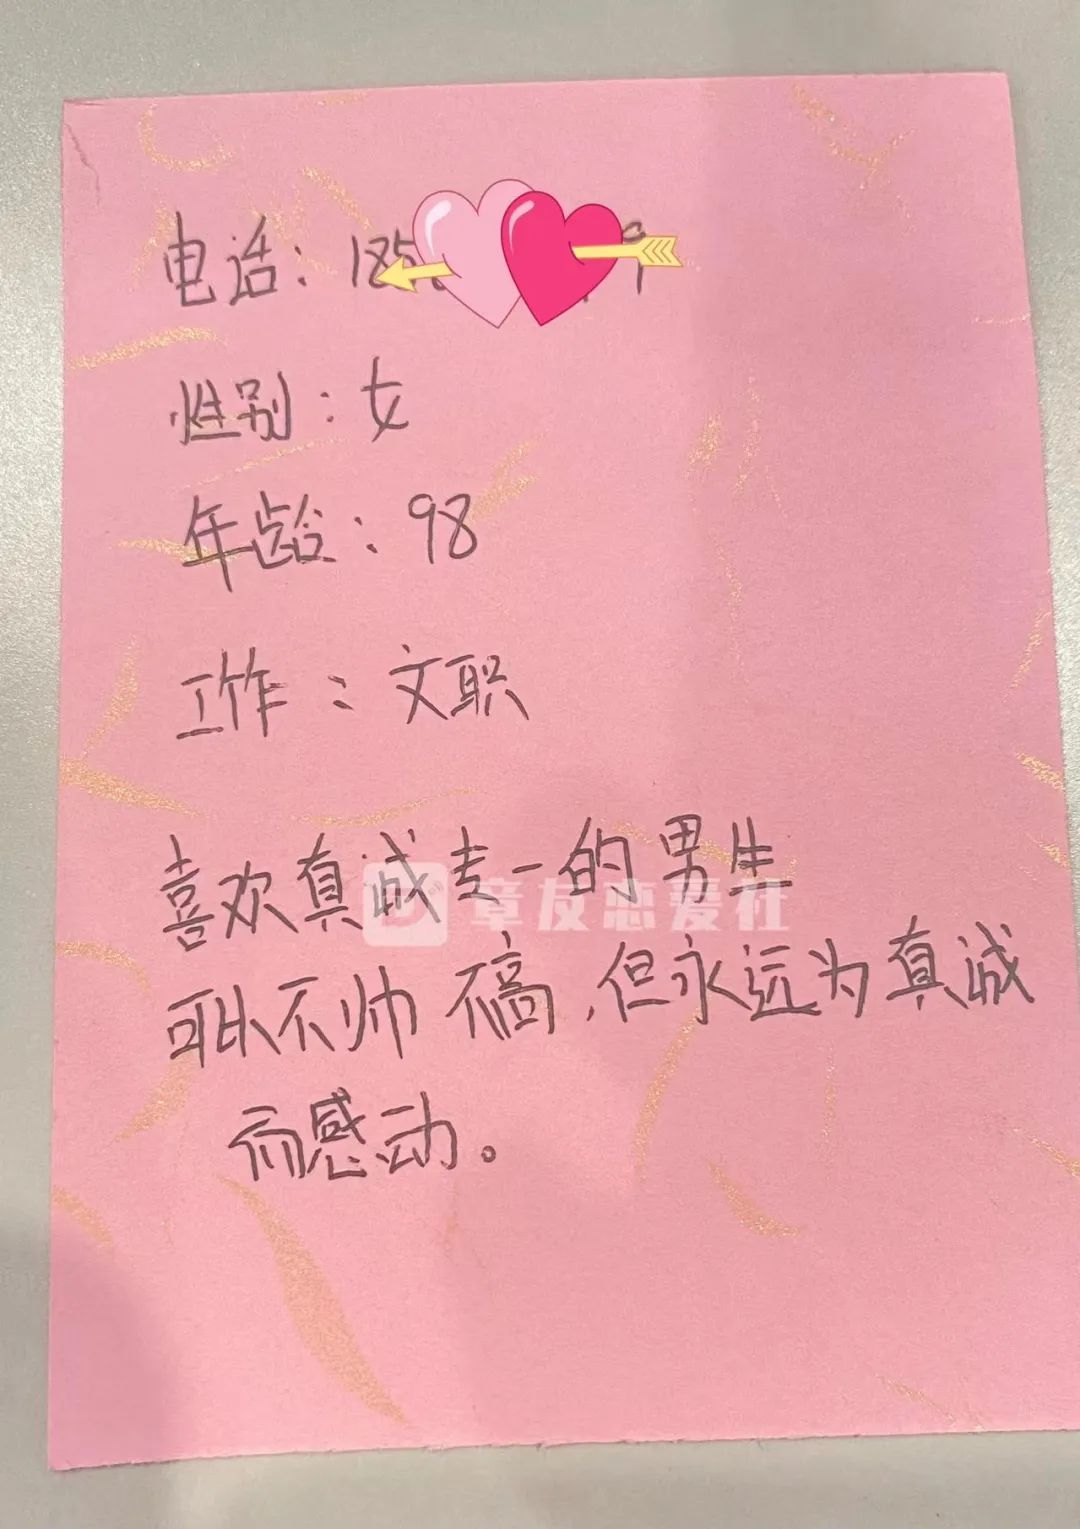 电话：185 9
性别：女
年龄：98
工作：文职
喜欢真诚专一的男生
章友恋爱社
可以不帅 不高，但永远为真诚
而感动。